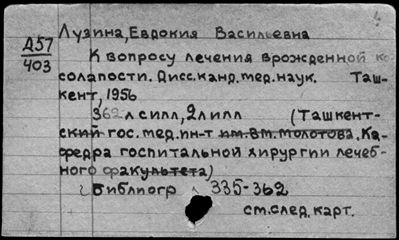 Лузина, Евдокия Васильевна
Д57
403
К вопросу лечения врожденной ко
солапости. Дисс.канд.мед.наук. Таш-
кент, 1956
362 л с илл, 2 л илл (Ташкент-
ский гос. мед. ин-т им. В. М. Молотова. Ка-
федра госпитальной хирургии лечеб-
ного факультета)
Библиогр 335-362
см.след.карт.